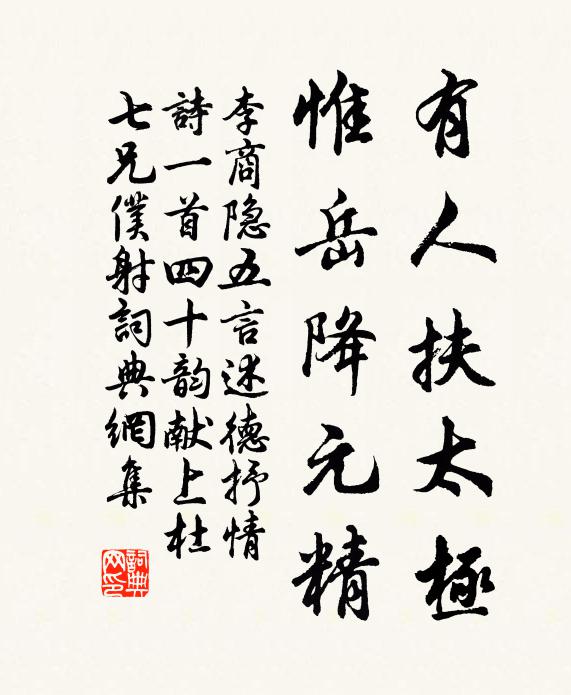 有人扶太極
惟岳降元精
李商隐五言述德抒情
詩一首四十韵献上杜
七兄僕射詞典網集
詞典网印